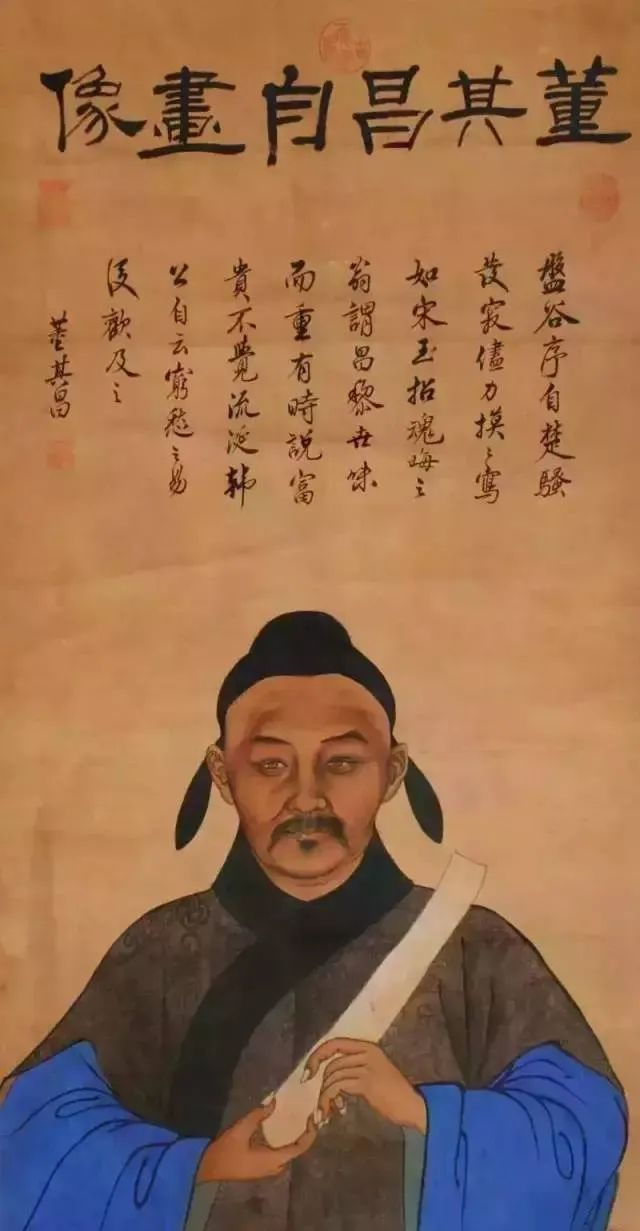 董其昌自畫像
盤谷序自楚騷
發寂儘力摸〻寫
如宋玉招魂晦〻
翁謂昌黎世味
而重有時說富
貴不覺流涎韩
公自云窮愁之易
歡及之
董其昌